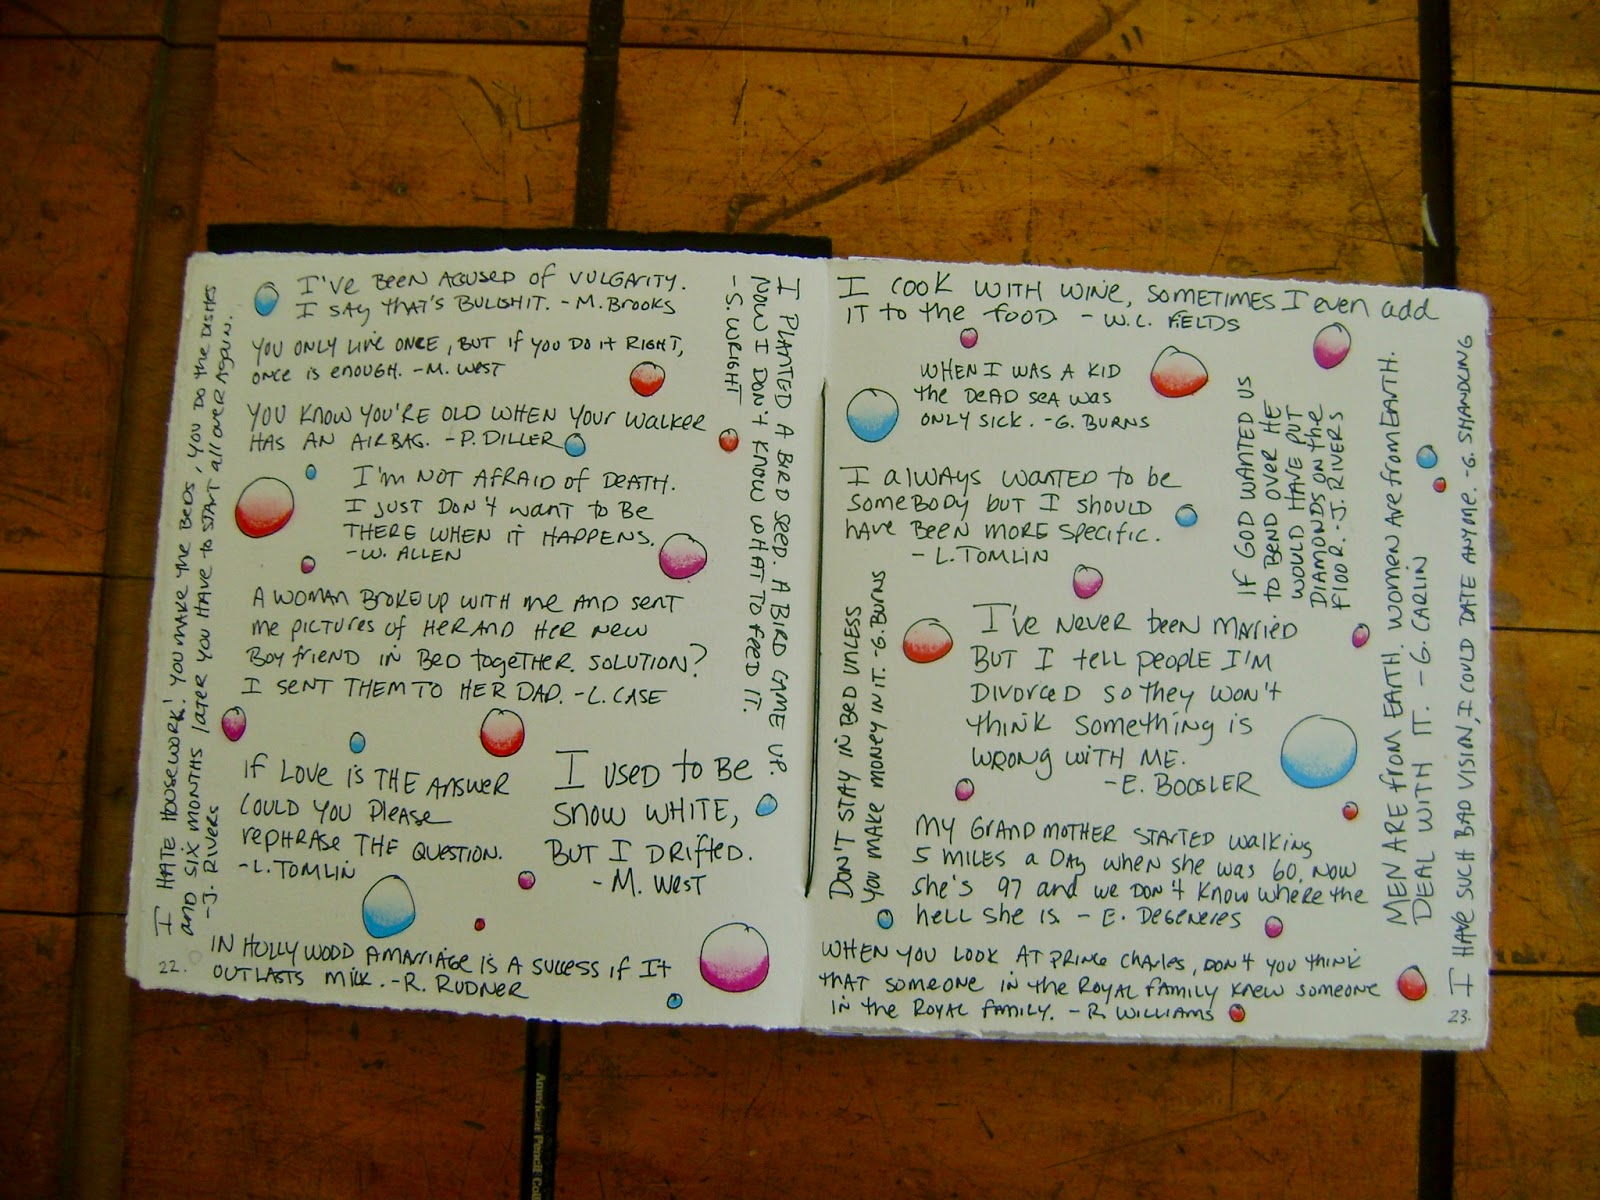 I HATE HOUSEWORK! YOU MAKE THE BEDS, YOU DO THE DISHES
AND SIX MONTHS LATER YOU HAVE TO START ALL OVER AGAIN.
-J. RIVERS
I'VE BEEN ACCUSED OF VULGARITY.
I SAY THAT'S BULLSHIT. -M. BROOKS
YOU ONLY LIVE ONCE, BUT IF YOU DO IT RIGHT,
ONCE IS ENOUGH. -M. WEST
YOU KNOW YOU'RE OLD WHEN YOUR WALKER
HAS AN AIRBAG. -P. DILLER
I'M NOT AFRAID OF DEATH.
I JUST DON'T WANT TO BE
THERE WHEN IT HAPPENS.
-W. ALLEN
A WOMAN BROKE UP WITH ME AND SENT
ME PICTURES OF HER AND HER NEW
BOY FRIEND IN BED TOGETHER. SOLUTION?
I SENT THEM TO HER DAD. -L. CASE
IF LOVE IS THE ANSWER
COULD YOU PLEASE
REPHRASE THE QUESTION.
-L. TOMLIN
I USED TO BE
SNOW WHITE,
BUT I DRIFTED.
- M. WEST
IN HOLLYWOOD A MARRIAGE IS A SUCCESS IF IT
OUTLASTS MILK. -R. RUDNER
22.
I PLANTED A BIRD SEED. A BIRD CAME UP.
NOW I DON'T KNOW WHAT TO FEED IT.
- S. WRIGHT
I COOK WITH WINE, SOMETIMES I EVEN ADD
IT TO THE FOOD - W.C. FIELDS
WHEN I WAS A KID
THE DEAD SEA WAS
ONLY SICK. -G. BURNS
I ALWAYS WANTED TO BE
SOMEBODY BUT I SHOULD
HAVE BEEN MORE SPECIFIC.
- L. TOMLIN
IF GOD WANTED US
TO BEND OVER HE
WOULD HAVE PUT
DIAMONDS ON THE
FLOOR. -J. RIVERS
DON'T STAY IN BED UNLESS
YOU MAKE MONEY IN IT. -G. BURNS
I'VE NEVER BEEN MARRIED
BUT I TELL PEOPLE I'M
DIVORCED SO THEY WON'T
THINK SOMETHING IS
WRONG WITH ME.
-E. BOOSLER
MY GRANDMOTHER STARTED WALKING
5 MILES A DAY WHEN SHE WAS 60. NOW
SHE'S 97 AND WE DON'T KNOW WHERE THE
HELL SHE IS. - E. DEGENERES
WHEN YOU LOOK AT PRINCE CHARLES, DON'T YOU THINK
THAT SOMEONE IN THE ROYAL FAMILY KNEW SOMEONE
IN THE ROYAL FAMILY. - R. WILLIAMS
MEN ARE FROM EARTH. WOMEN ARE FROM EARTH.
DEAL WITH IT. - G. CARLIN
I HAVE SUCH BAD VISION, I COULD DATE ANYME. -G. SHANDLING
23.
American Pencil